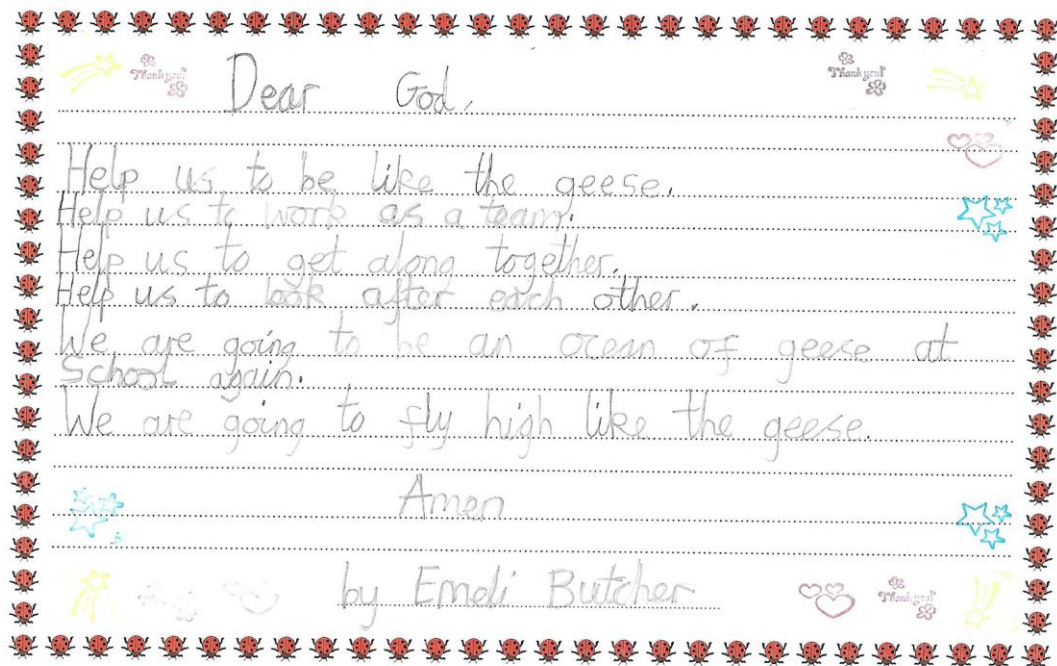 Thank you!
Thank you!
Dear God,
Help us to be like the geese.
Help us to work as a team.
Help us to get along together.
Help us to look after each other.
We are going to be an ocean of geese at
School again.
We are going to fly high like the geese.
Amen
by Emeli Butcher
Thank you!
Thank you!